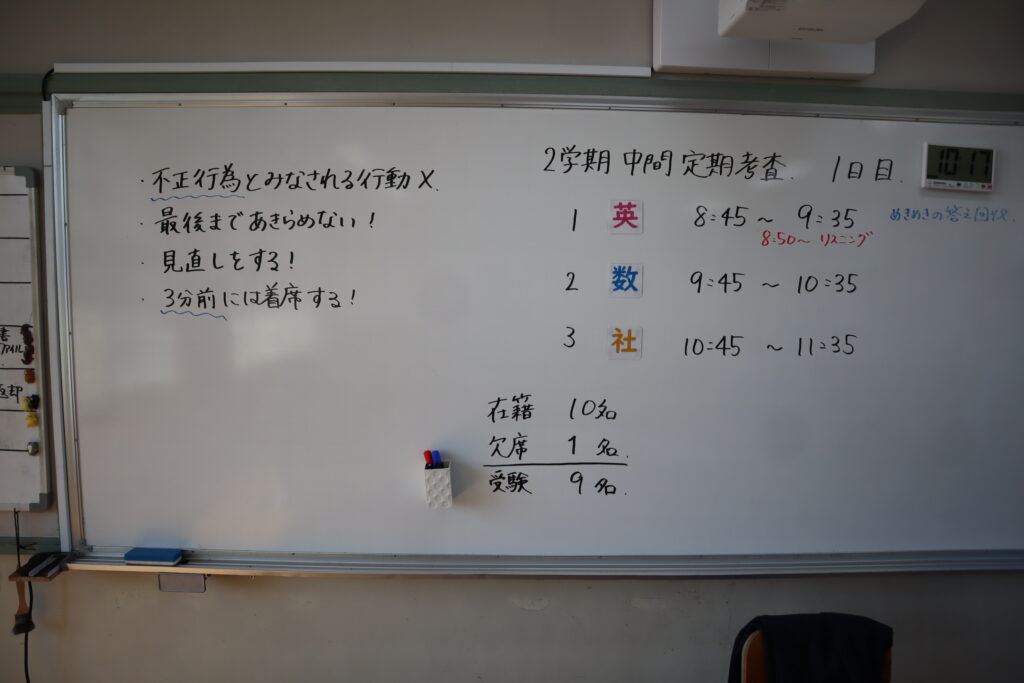 ・不正行為とみなされる行動×.
・最後まであきらめない！
・見直しをする！
・3分前には着席する！
2学期 中間 定期考査. 1日目.
10:17
1 英 8:45 ～ 9:35
8:50～ リスニング
2 数 9:45 ～ 10:35
3 社 10:45 ～ 11:35
在籍 10名
欠席 1名.
受験 9名.
返却